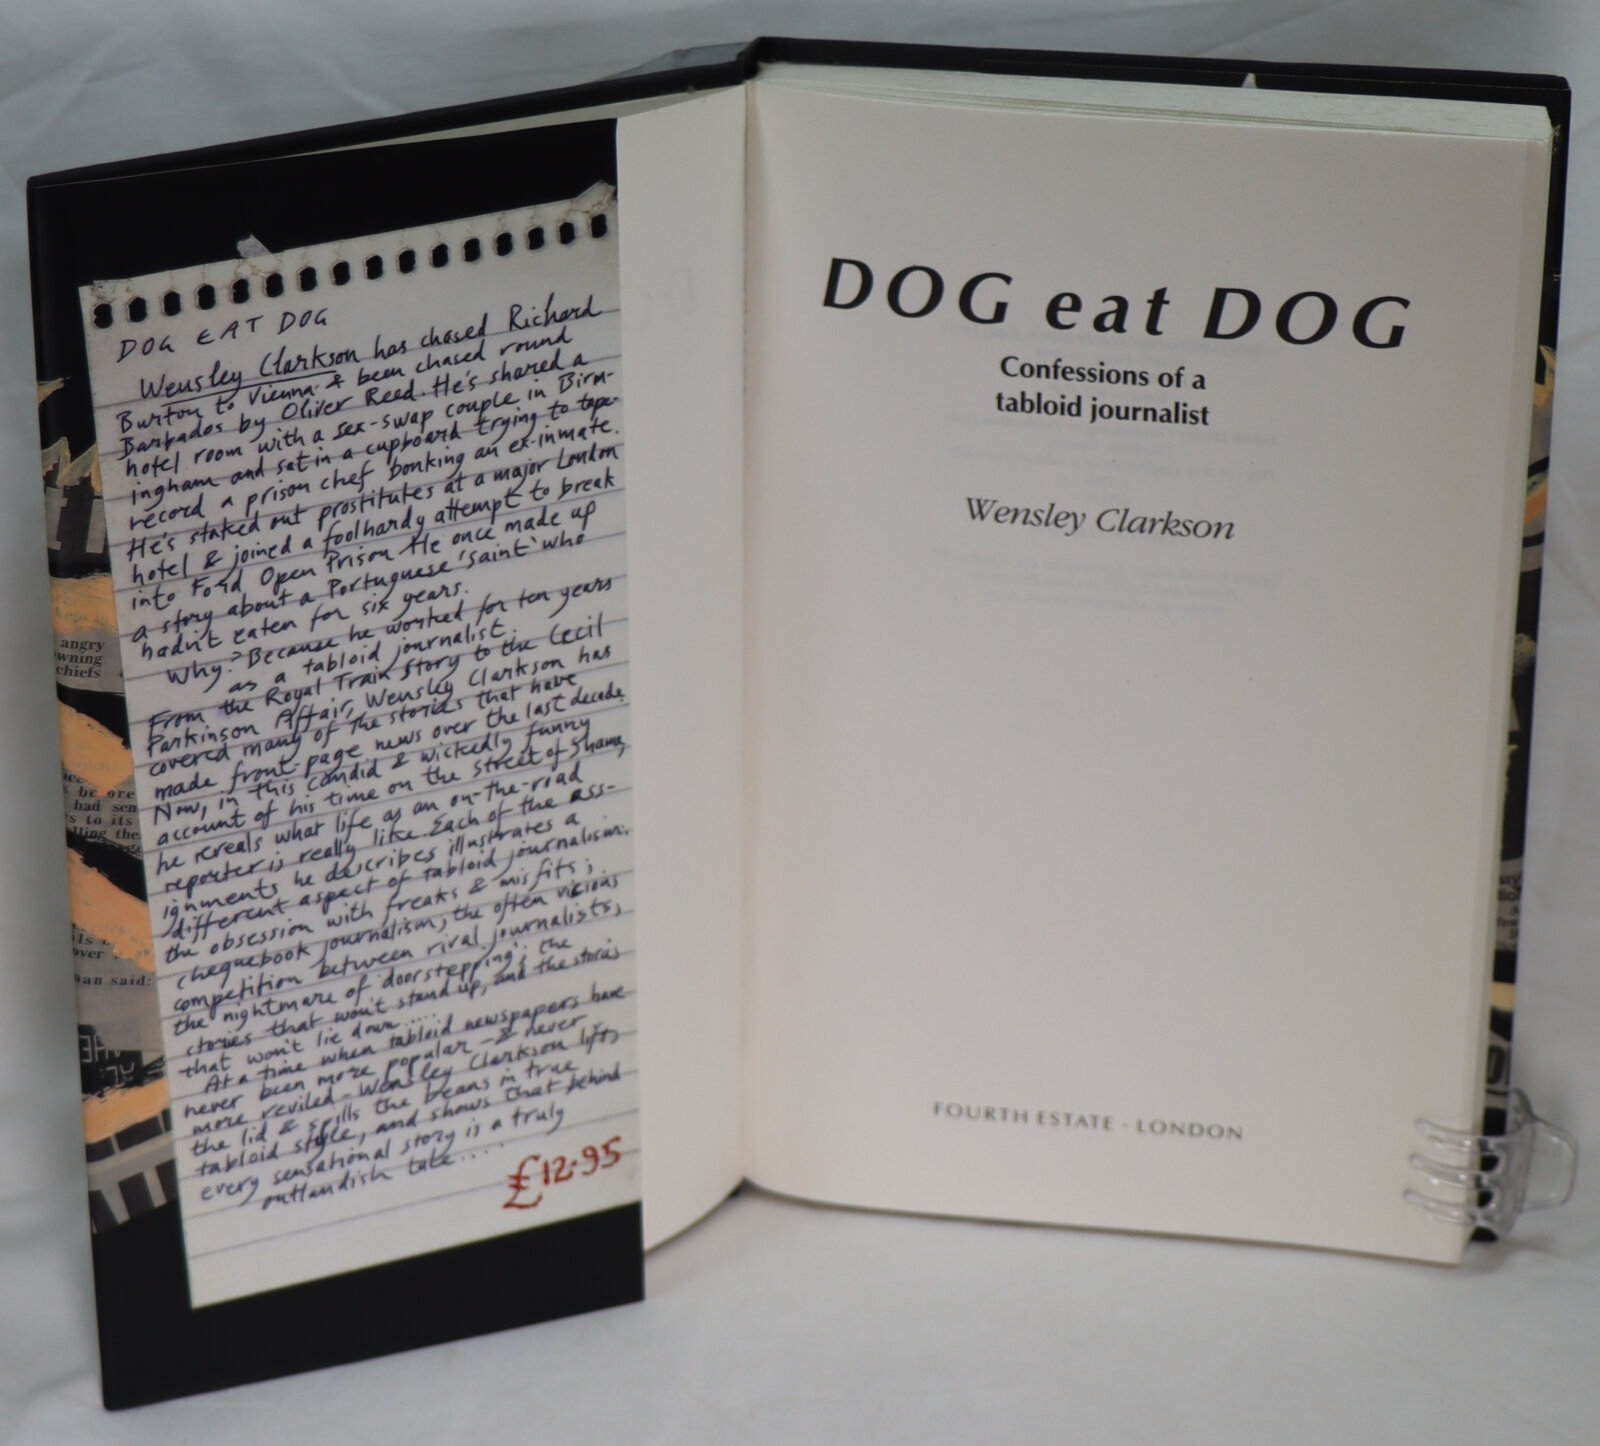 DOG EAT DOG
Wensley Clarkson has chased Richard
Burton to Vienna & been chased round
Barbados by Oliver Reed. He's shared a
hotel room with a sex-swap couple in Birm-
ingham and sat in a cupboard trying to tape-
record a prison chef bonking an ex-inmate.
He's staked out prostitutes at a major London
hotel & joined a foolhardy attempt to break
into Ford Open Prison. He once made up
a story about a Portuguese 'saint' who
hadn't eaten for six years.
Why? Because he worked for ten years
as a tabloid journalist.
From the Royal Train story to the Cecil
Parkinson Affair, Wensley Clarkson has
covered many of the stories that have
made front-page news over the last decade.
Now, in this candid & wickedly funny
account of his time on the Street of Shame,
he reveals what life as an on-the-road
reporter is really like. Each of the ass-
ignments he describes illustrates a
different aspect of tabloid journalism:
the obsession with freaks & misfits;
chequebook journalism; the often vicious
competition between rival journalists;
the nightmare of 'doorstepping'; the
stories that won't stand up, and the stories
that won't lie down....
At a time when tabloid newspapers have
never been more popular – & never
more reviled – Wensley Clarkson lifts
the lid & spills the beans in true
tabloid style, and shows that behind
every sensational story is a truly
outlandish tale....
£12.95
angry
wning
chiefs
be ore
had sen
s to its
lling the
over
an said:
DOG eat DOG
Confessions of a
tabloid journalist
Wensley Clarkson
FOURTH ESTATE · LONDON